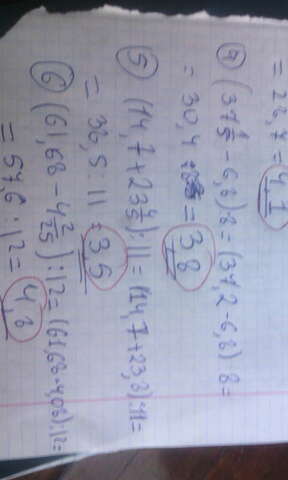 = 28,7 = 4,1
④ (37 1/5 - 6,8) : 8 = (37,2 - 6,8) : 8 =
= 30,4 : 8 = 3,8
⑤ (14,7 + 23 4/5) : 11 = (14,7 + 23,8) : 11 =
= 38,5 : 11 = 3,5
⑥ (61,68 - 4 2/25) : 12 = (61,68 - 4,08) : 12 =
= 57,6 : 12 = 4,8